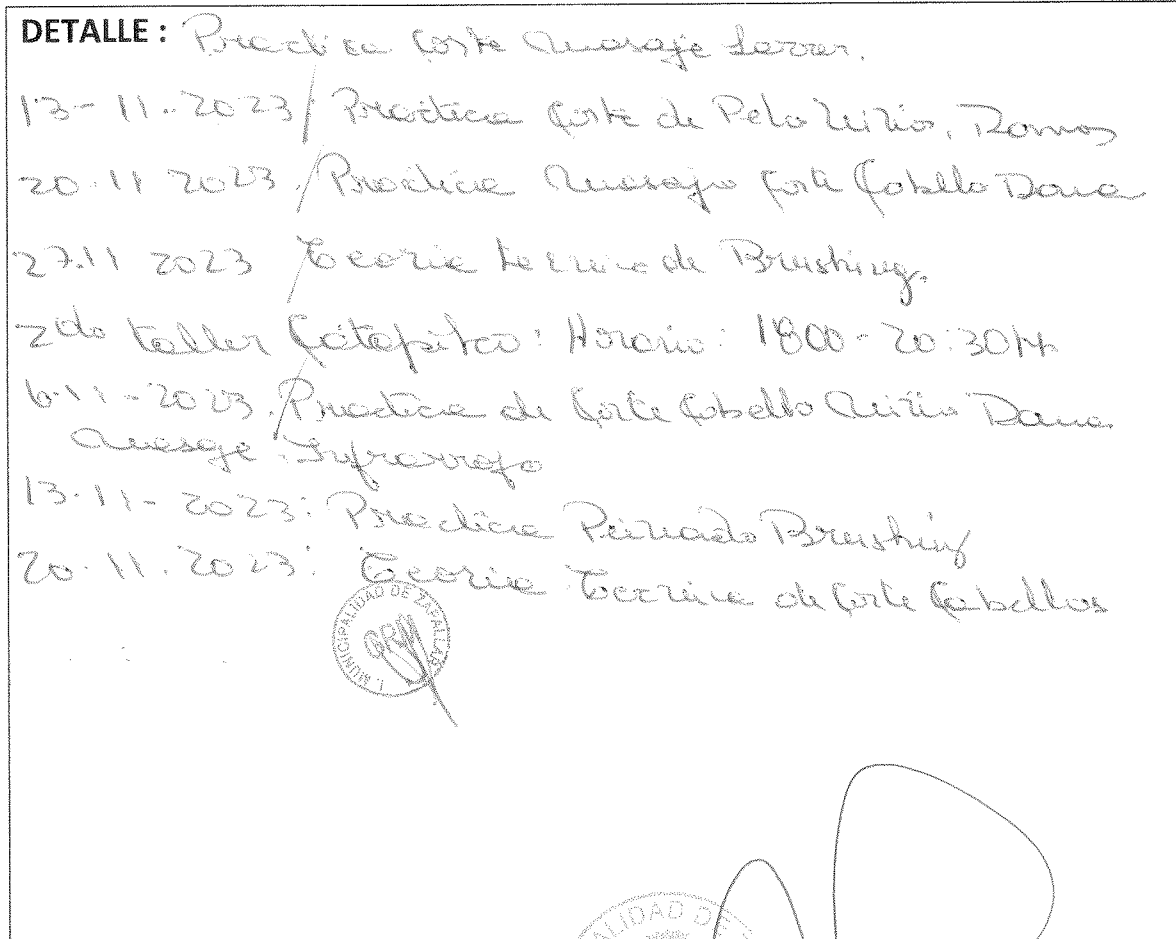 DETALLE: Practica Corte Masaje
13-11-2023: Practica Corte de Pelo Niño, Damas
20.11 2023. Practica Masaje Corte Cabello Dama
27.11 2023 Teoria Tecnica de Brushing.
2do taller Catapilco: Horario: 1800-20:30H
6-11-2023. Practica de Corte Cabello Niño Dama
Masaje Infrarrojo
13-11-2023: Practica Peinado Brushing
20.11.2023: Teoria Tecnica de Corte Cabellos
I. MUNICIPALIDAD DE ZAPALLAR
ALIDAD DE